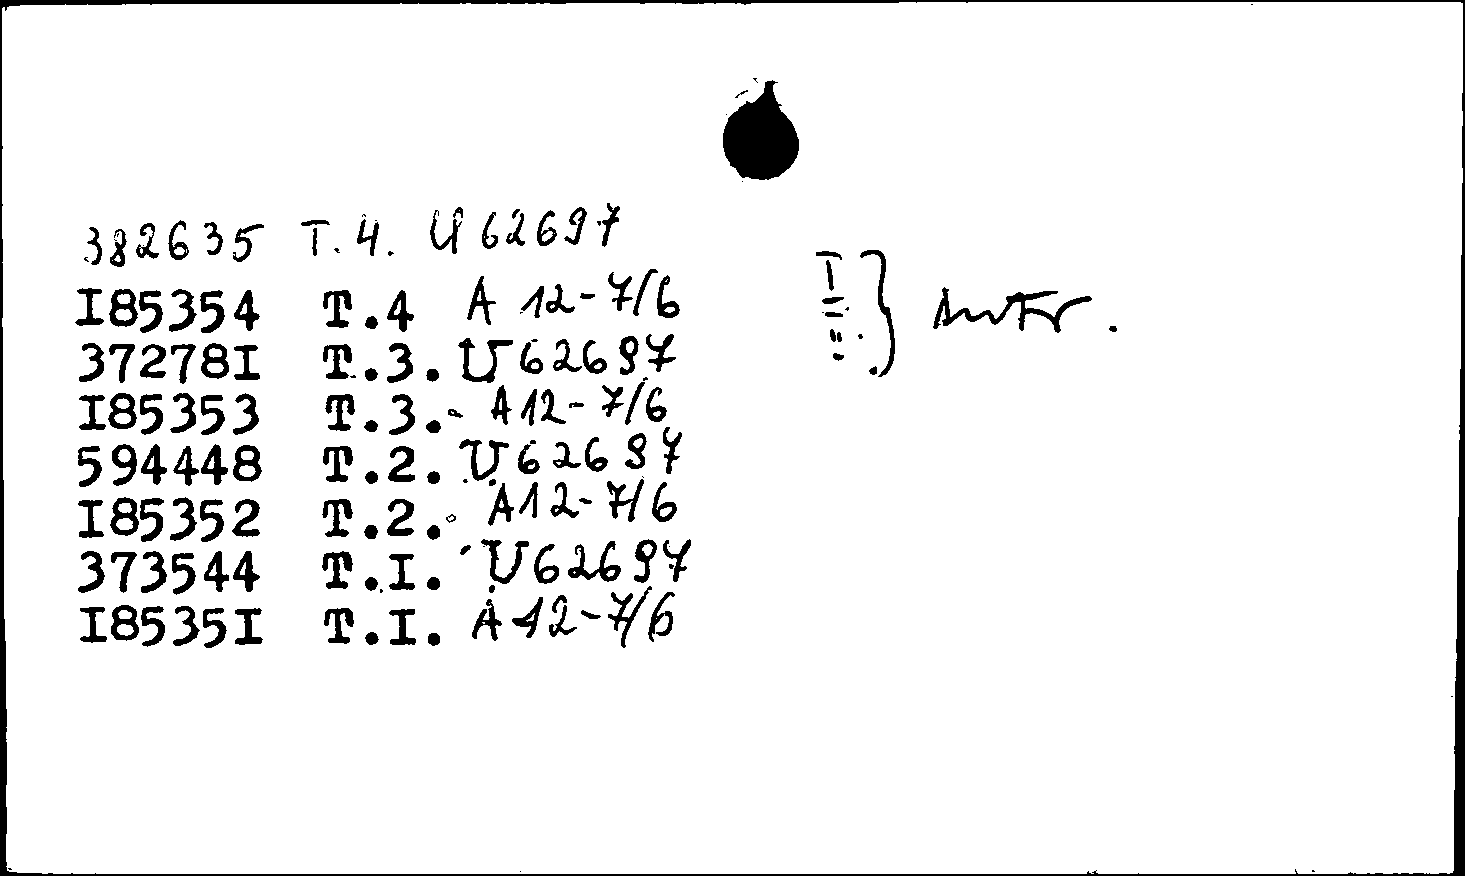 382635 T.4. U 62697
I85354 T.4 A 12-7/6
37278I T.3. U 62697
I85353 T.3. A 12-7/6
594448 T.2. U 62697
I85352 T.2. A 12-7/6
373544 T.I. U 62697
I8535I T.I. A 12-7/6